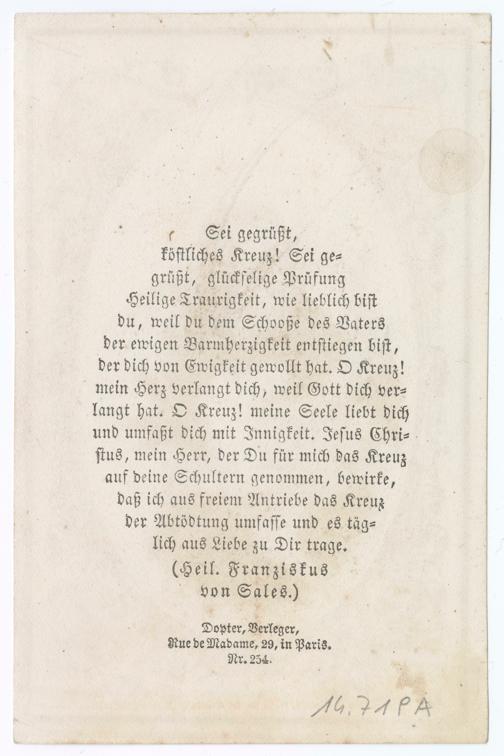 Sei gegrüßt,
köstliches Kreuz! Sei ge-
grüßt, glückselige Prüfung
Heilige Traurigkeit, wie lieblich bist
du, weil du dem Schooße des Vaters
der ewigen Barmherzigkeit entstiegen bist,
der dich von Ewigkeit gewollt hat. O Kreuz!
mein Herz verlangt dich, weil Gott dich ver-
langt hat. O Kreuz! meine Seele liebt dich
und umfaßt dich mit Innigkeit. Jesus Chri-
stus, mein Herr, der Du für mich das Kreuz
auf deine Schultern genommen, bewirke,
daß ich aus freiem Antriebe das Kreuz
der Abtödtung umfasse und es täg-
lich aus Liebe zu Dir trage.
(Heil. Franziskus
von Sales.)
Dopter, Verleger,
Rue de Madame, 29, in Paris.
Nr. 254.
14.71PA